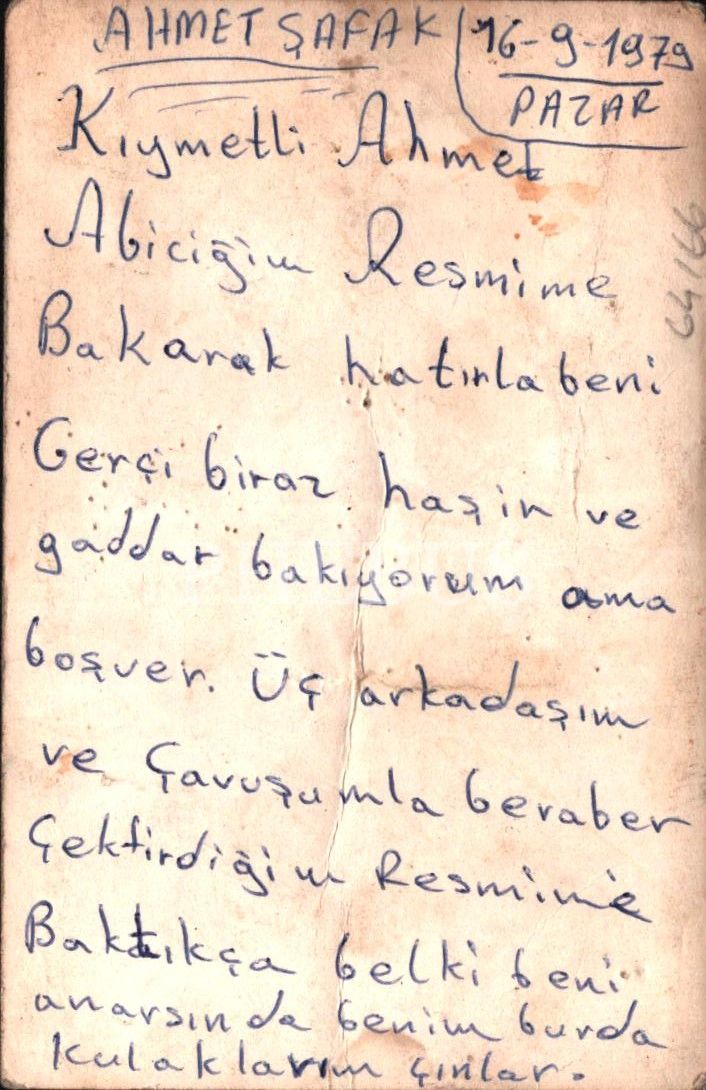 AHMET ŞAFAK
16-9-1979
PAZAR
Kıymetli Ahmet
Abiciğim Resmime
Bakarak hatırla beni
Gerçi biraz haşin ve
gaddar bakıyorum ama
boşver. Üç arkadaşım
ve Çavuşumla beraber
Çektirdiğim Resmime
Baktıkça belki beni
anarsın da benim burda
Kulaklarım çınlar.
64166